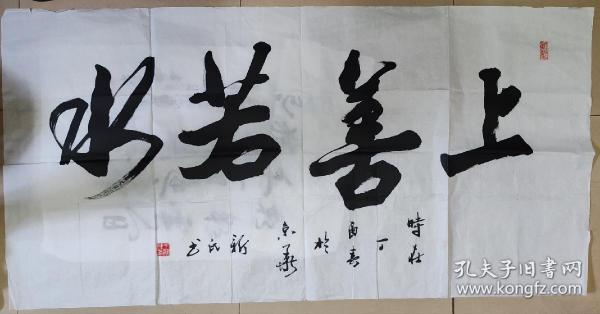 上善若水
時在
丁
酉春
於
京華
新
民
书
孔夫子旧书网
www.kongfz.com